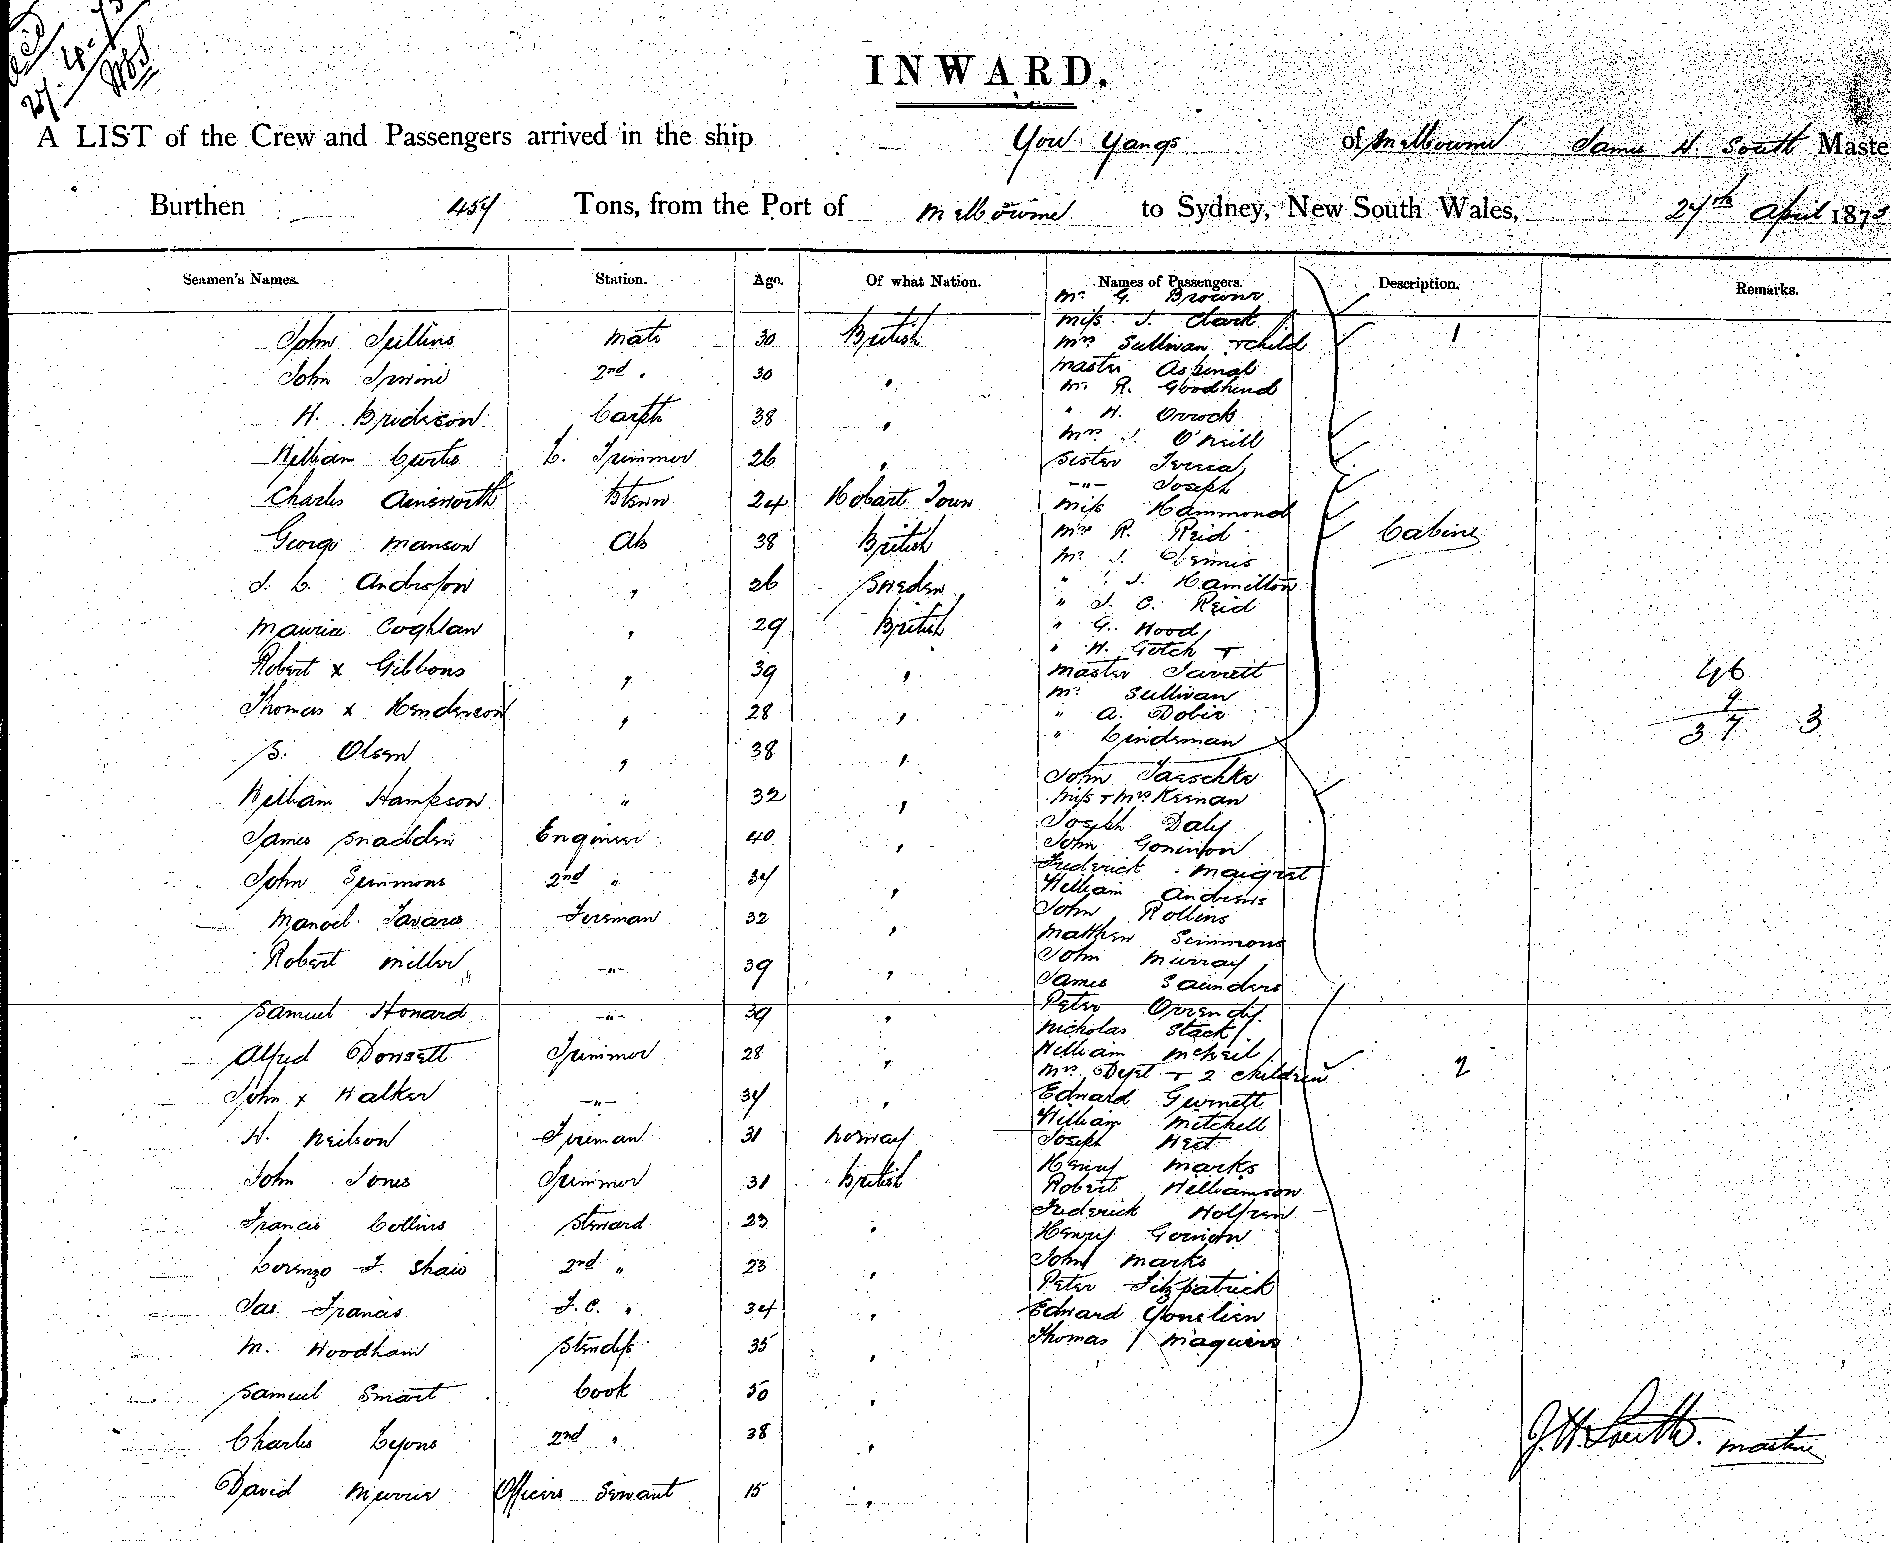 INWARD.
A LIST of the Crew and Passengers arrived in the ship You Yangs of Melbourne James H. South Maste
Burthen 457 Tons, from the Port of Melbourne to Sydney, New South Wales, 27th April 187
Seamen's Names. Station. Age. Of what Nation. Names of Passengers. Description. Remarks.
Mr. G. Browne
Miss J. Clark
John Mate 30 British Mrs Sullivan + child 1
John Irvine 2nd " 30 " Master Aspinal
Mr. R. Goodhind
H. Carptr 38 " " H. Orrock
Mrs J. O'Neill
William Curtis L. Trimmer 26 " Sister
Charles Ainsworth 24 Hobart Town -"- Joseph
Miss Hammond
George Manson Ab 38 British Mrs R. Reid Cabin
Mr. J. Dennis
J. L. Anderson " 26 Sweden " J. Hamilton
" J. C. Reid
Maurice Coghlan " 29 British " G. Wood
" H. Gotch +
Robert x Gibbons " 39 " Master Jarrett 46
Mr. Sullivan 9
Thomas x Henderson " 28 " " A. Dobie 37 3
B. Olsen " 38 " " Lindeman
John Jaeschke
William Hampson " 32 " Miss + Mrs Keenan
Joseph Daly
James Snadden Engineer 40 " John
Frederick
John Simmons 2nd " 34 " William Andrews
Manoel Tavares Fireman 32 " John Rollins
Matthew Simmons
Robert Miller -"- 39 " John Murray
James Saunders
Samuel Howard -"- 39 " Peter
Nicholas Stack
Alfred Dowsett Trimmer 28 " William McNeil
Mrs Dept + 2 children 2
John x Walker -"- 34 " Edward Gurnett
William Mitchell
H. Neilson Fireman 31 Norway Joseph West
Henry Marks
John Jones Trimmer 31 British Robert Williamson
Frederick
Francis Collins Steward 23 " Henry
Lorenzo F. Shaw 2nd " 23 " John Marks
Peter Fitzpatrick
Jas Francis F.C. " 34 " Edward
M. Woodham Stewdss 35 " Thomas Maguire
Samuel Smart Cook 50 "
Charles Lyons 2nd " 38 "
J.H. South. Master
David Officers Servant 15 "